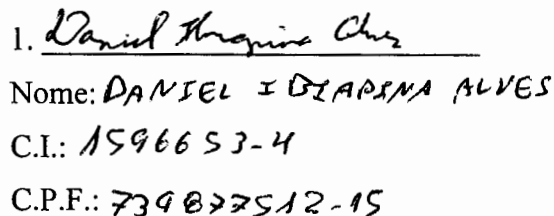 1. Daniel Ibiapina Alves
Nome: DANIEL IBIAPINA ALVES
C.I.: 1596653-4
C.P.F.: 739877512-15